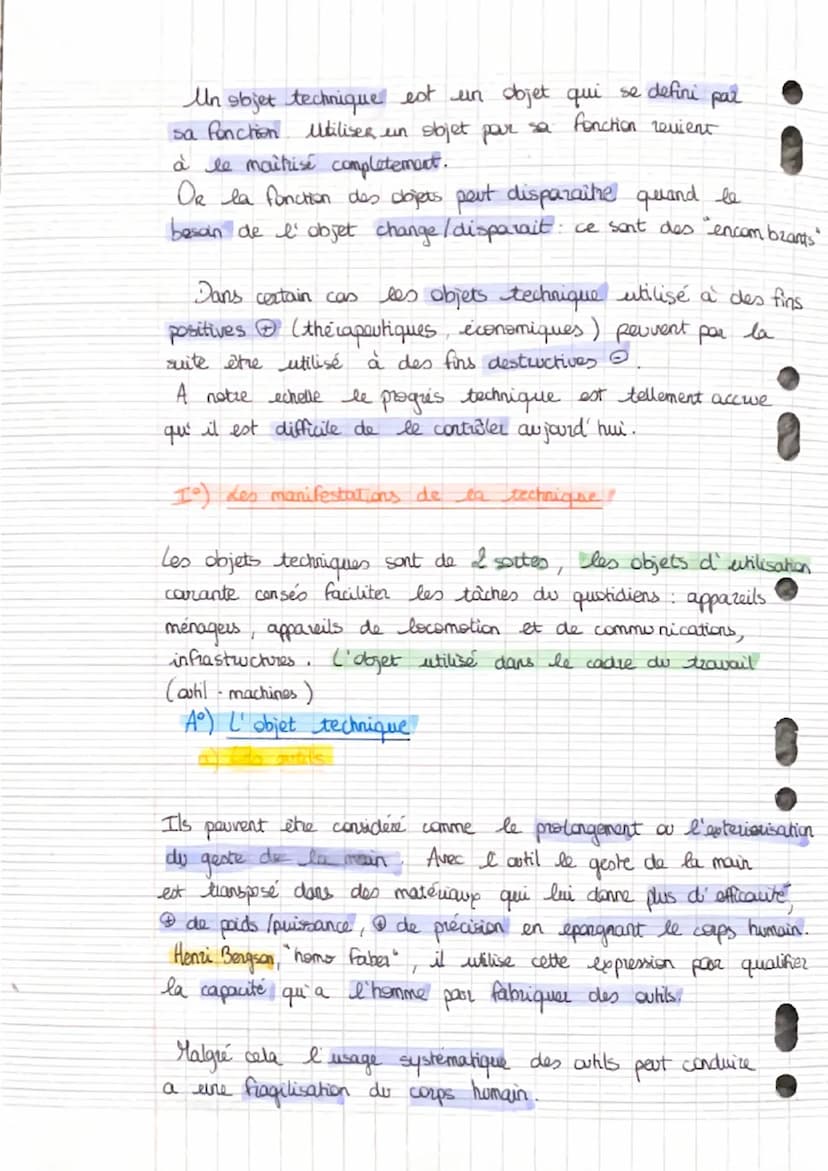 Un objet technique est un objet qui se defini par
sa fonction. Utiliser un objet par sa fonction revient
à le maîtrisé completemant.
Or la fonction des objets peut disparaître quand le
besoin de l'objet change/disparait : ce sont des "encombrants"
Dans certain cas les objets technique utilisé à des fins
positives ⊕ (thérapeutiques, économiques) peuvent par la
suite être utilisé à des fins destructives ⊖.
A notre echelle le progrés technique est tellement accrue
qu'il est difficile de le contrôler aujourd'hui.
I°) Les manifestations de la technique
Les objets techniques sont de 2 sortes, les objets d'utilisation
courante censés faciliter les tâches du quotidiens : appareils
ménagers, appareils de locomotion et de communications,
infrastructures. L'objet utilisé dans le cadre du travail
(outil - machines)
A°) L'objet technique
a) Les outils
Ils peuvent être considéré comme le prolongement ou l'exteriorisation
du geste de la main. Avec l'outil le geste de la main
est transposé dans des matériaux qui lui donne plus d'efficacité,
⊕ de poids/puissance, ⊕ de précision en epargnant le corps humain.
Henri Bergson, "homo Faber", il utilise cette expression pour qualifier
la capacité qu'a l'homme pour fabriquer des outils.
Malgré cela l'usage systématique des outils peut conduire
a une fragilisation du corps humain.